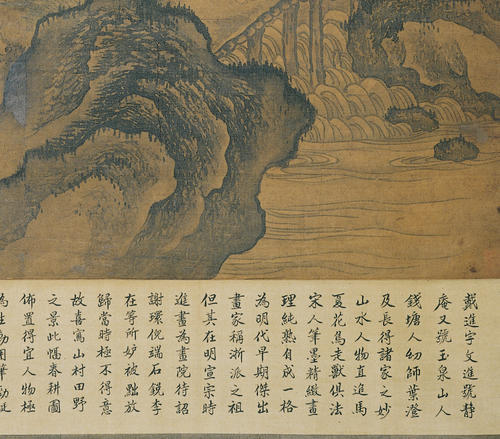 戴進字文進號靜
庵又號玉泉山人
錢塘人幼師葉澄
及長得諸家之妙
山水人物直追馬
夏花鳥走獸俱法
宋人筆墨精緻畫
理純熟自成一格
為明代早期傑出
畫家稱浙派之祖
但其在明宣宗時
進畫為畫院待詔
謝環倪端石銳李
在等所妒被黜放
歸當時極不得意
故喜寫山村田野
之景此幅春耕圖
佈置得宜人物極
為生動用筆勁挺